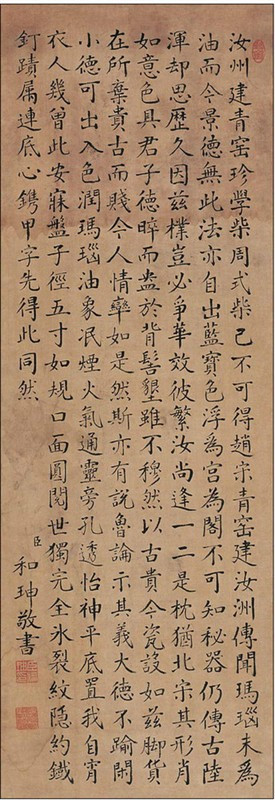 汝州建青窑珍學柴周式柴已不可得趙宋青窑建汝洲傳聞瑪瑙末為
油而今景德無此法亦自出藍寶色浮為宮為閣不可知秘器仍傳古陸
渾却思歷久因兹樸豈必爭華效彼繁汝尚逢一二是枕猶北宋其形肖
如意色具君子德睟而盎於背髻墾雖不穆然以古貴今瓷設如兹脚貨
在所棄貴古而賤今人情率如是然斯亦有說魯論示其義大德不踰閑
小德可出入色潤瑪瑙油象泯煙火氣通靈旁孔透怡神平底置我自宵
衣人幾曾此安寐盤子徑五寸如規口面圓閱世獨完全氷裂紋隱約鐵
釘蹟属連底心鐫甲字先得此同然
臣和珅敬書